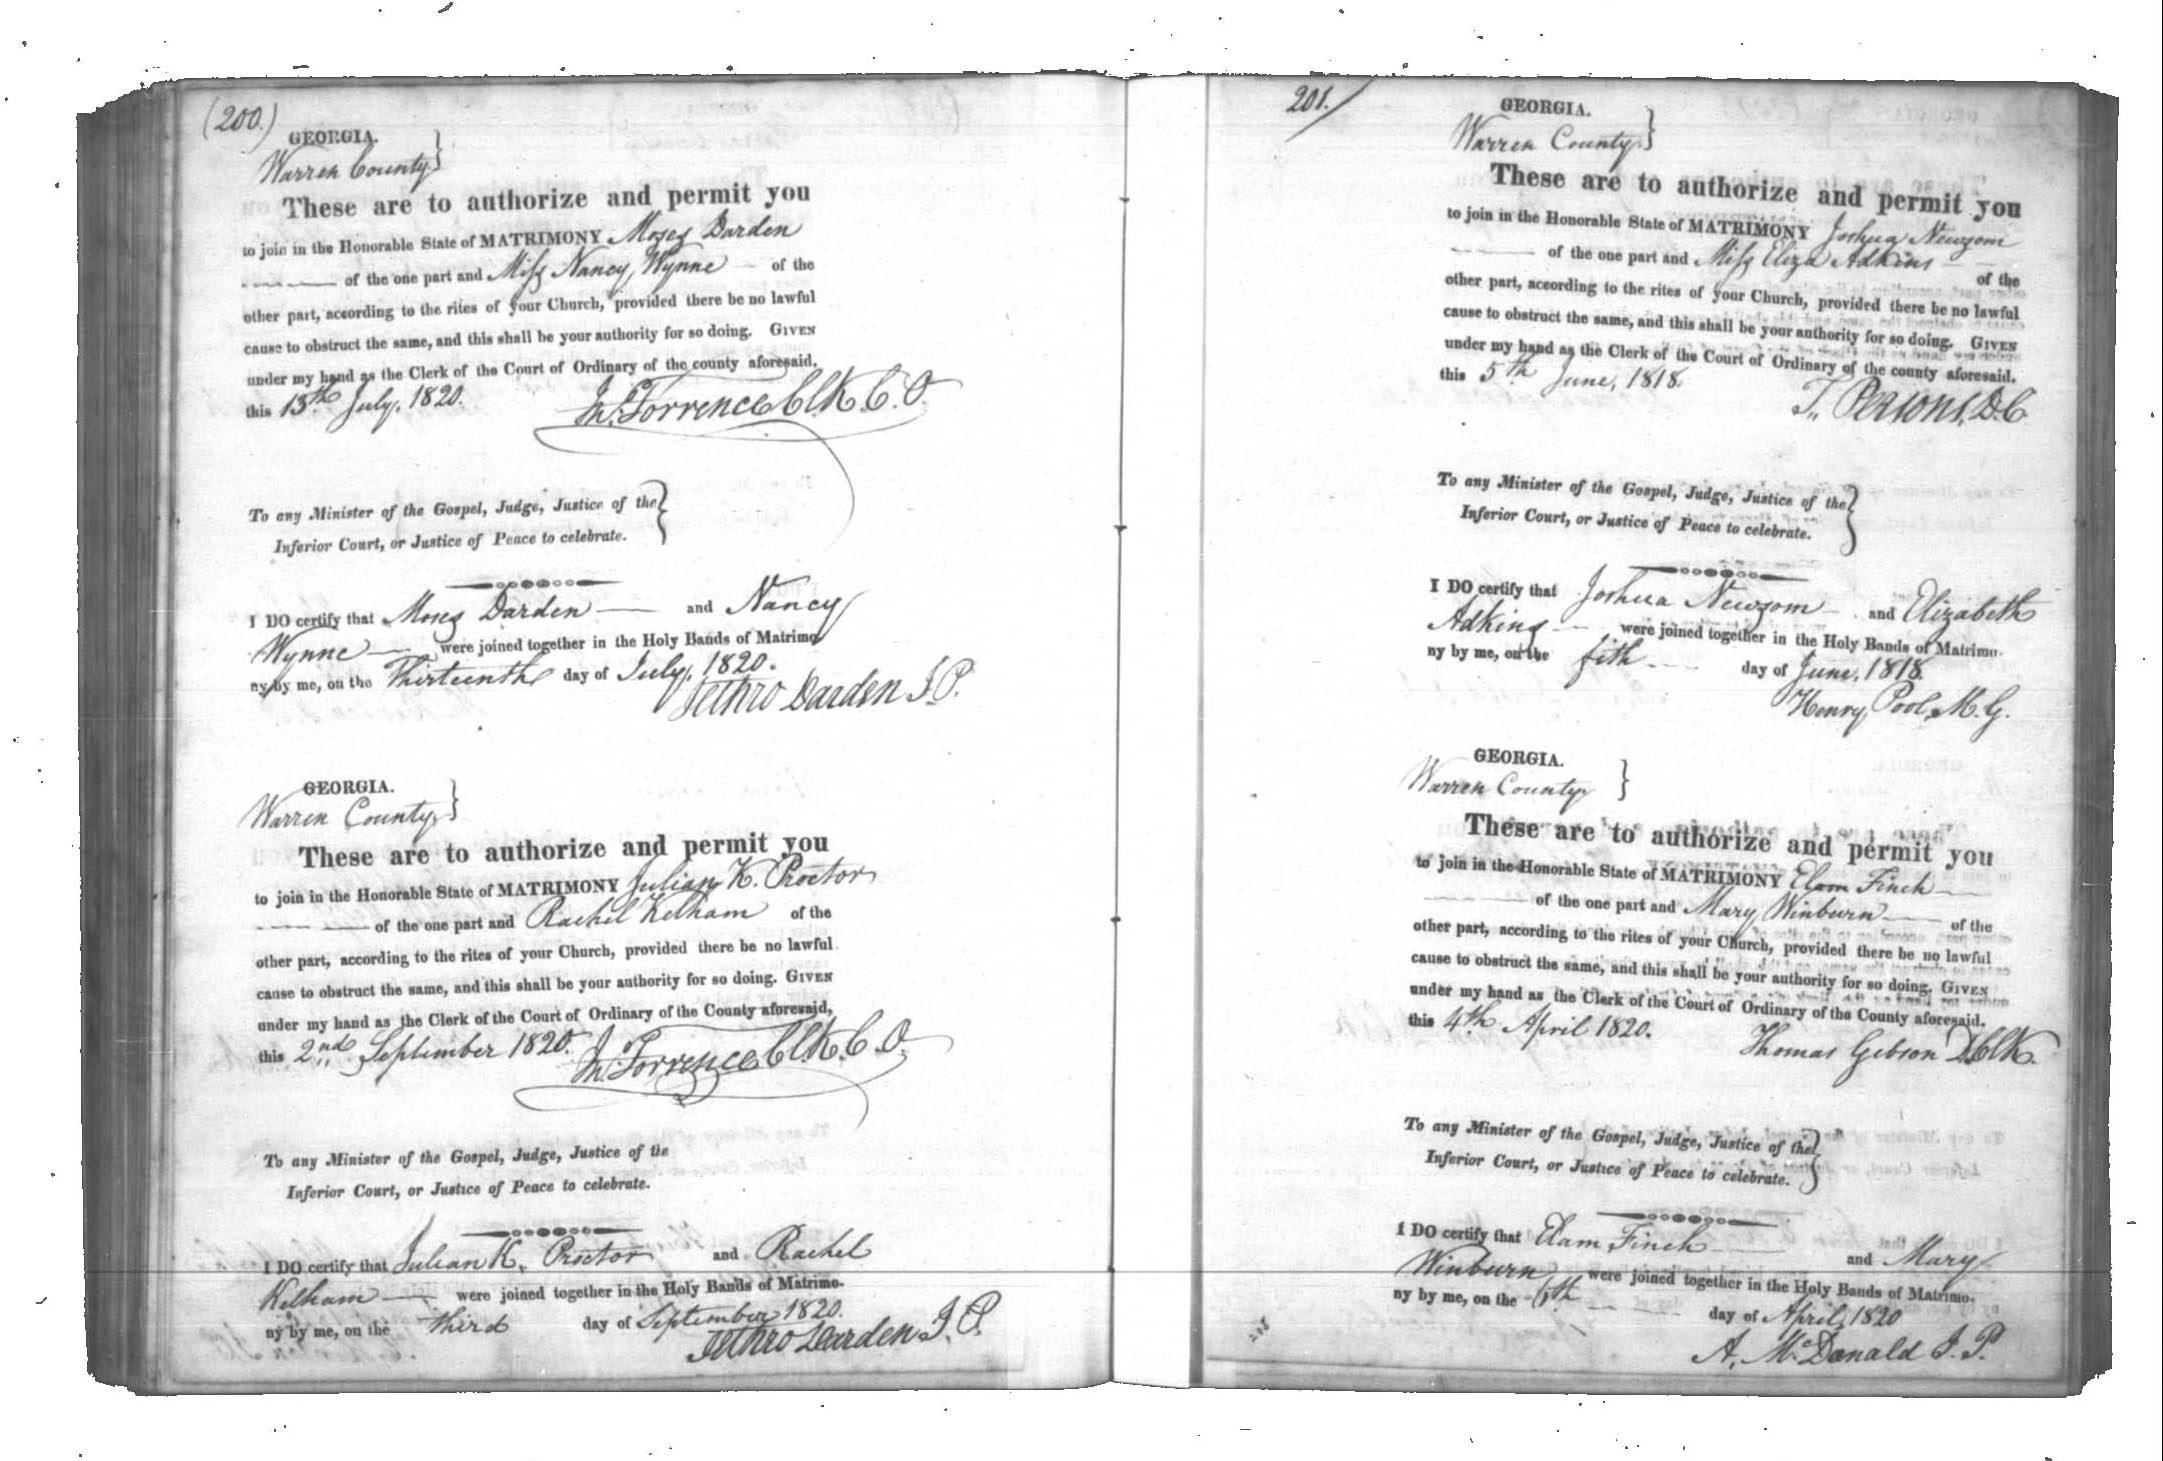 (200.)
GEORGIA.
Warren County }
These are to authorize and permit you
to join in the Honorable State of MATRIMONY Moses Darden
of the one part and Miss Nancy Wynne — of the
other part, according to the rites of your Church, provided there be no lawful
cause to obstruct the same, and this shall be your authority for so doing. GIVEN
under my hand as the Clerk of the Court of Ordinary of the county aforesaid,
this 13th July, 1820. Jn. Torrence Clk. C. O.
To any Minister of the Gospel, Judge, Justice of the }
Inferior Court, or Justice of Peace to celebrate.
I DO certify that Moses Darden — and Nancy
Wynne — were joined together in the Holy Bands of Matrimo
ny by me, on the Thirteenth day of July, 1820.
Jethro Darden J. P.
GEORGIA.
Warren County }
These are to authorize and permit you
to join in the Honorable State of MATRIMONY Julian K. Proctor
of the one part and Rachel Kelham of the
other part, according to the rites of your Church, provided there be no lawful
cause to obstruct the same, and this shall be your authority for so doing. GIVEN
under my hand as the Clerk of the Court of Ordinary of the County aforesaid,
this 2nd September 1820. Jn. Torrence Clk. C. O.
To any Minister of the Gospel, Judge, Justice of the
Inferior Court, or Justice of Peace to celebrate.
I DO certify that Julian K. Proctor and Rachel
Kelham — were joined together in the Holy Bands of Matrimo-
ny by me, on the third day of September 1820.
Jethro Darden J. P.
201.
GEORGIA.
Warren County }
These are to authorize and permit you
to join in the Honorable State of MATRIMONY Joshua Newsom
of the one part and Miss Eliza Adkins — of the
other part, according to the rites of your Church, provided there be no lawful
cause to obstruct the same, and this shall be your authority for so doing. GIVEN
under my hand as the Clerk of the Court of Ordinary of the county aforesaid.
this 5th June, 1818.
T. Persons, D. C
To any Minister of the Gospel, Judge, Justice of the }
Inferior Court, or Justice of Peace to celebrate.
I DO certify that Joshua Newsom — and Elizabeth
Adkins — were joined together in the Holy Bands of Matrimo-
ny by me, on the fith — day of June, 1818.
Henry Pool, M. G.
GEORGIA.
Warren County }
These are to authorize and permit you
to join in the Honorable State of MATRIMONY Elam Finch —
of the one part and Mary Winburn — of the
other part, according to the rites of your Church, provided there be no lawful
cause to obstruct the same, and this shall be your authority for so doing. GIVEN
under my hand as the Clerk of the Court of Ordinary of the County aforesaid.
this 4th April 1820. Thomas Gibson D. Clk.
To any Minister of the Gospel, Judge, Justice of the }
Inferior Court, or Justice of Peace to celebrate.
I DO certify that Elam Finch — and Mary
Winburn were joined together in the Holy Bands of Matrimo-
ny by me, on the 6th day of April, 1820
A. McDonald J. P.